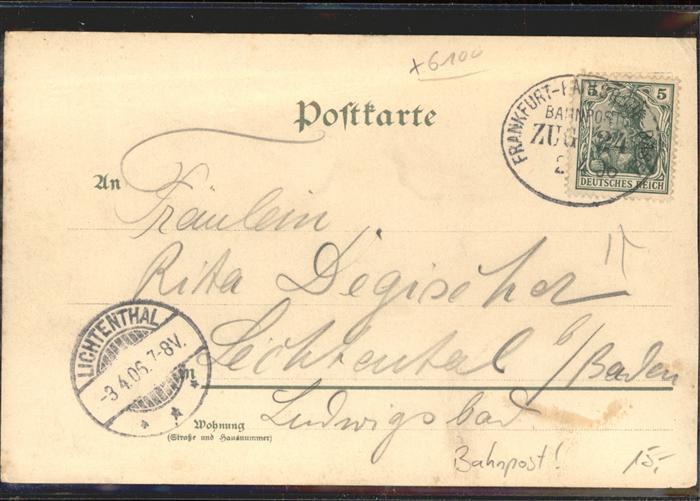 x6100
Postkarte
5 5
DEUTSCHES REICH
FRANKFURT-
BAHNPOST
ZUG 24
An
Fräulein
Rita Degischer
LICHTENTHAL
-3.4.06.7-8V.
in Lichtental b/Baden
Ludwigsbad
Wohnung
(Straße und Hausnummer)
Bahnpost!
15,-